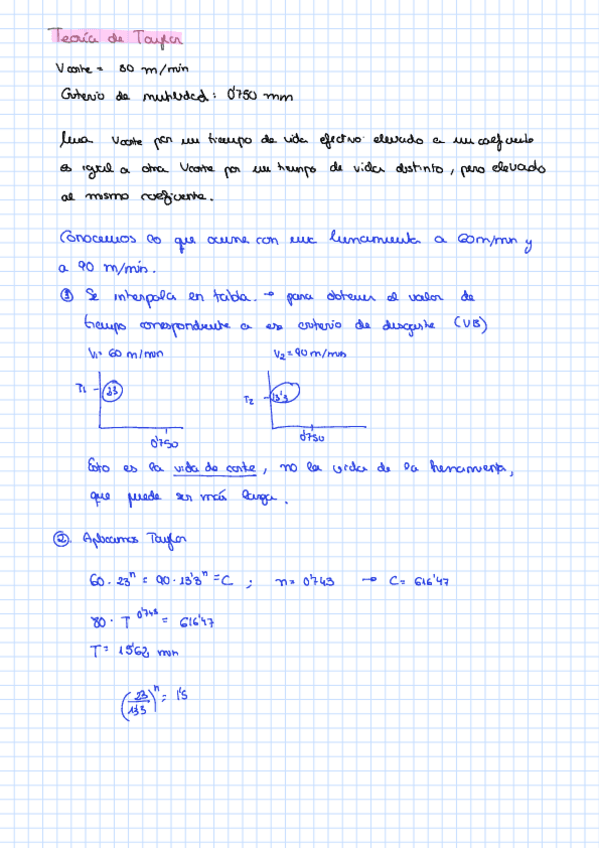 Teoría de Taylor
Vcorte = 80 m/min
Criterio de inutilidad: 0'750 mm
Una Vcorte por un tiempo de vida efectivo elevado a un coeficiente
es igual a otra Vcorte por un tiempo de vida distinto, pero elevado
al mismo coeficiente.
Conocemos lo que ocurre con una herramienta a 60m/min y
a 90 m/min.
① Se interpola en tabla. → para obtener el valor de
tiempo correspondiente a ese criterio de desgaste (VB)
V₁= 60 m/min V₂= 90 m/min
T₁ 23 T₂ 13'3
0'750 0'750
Esto es la vida de corte, no la vida de la herramienta,
que puede ser más larga.
② Aplicamos Taylor
60 · 23ⁿ = 90 · 13'3ⁿ = C ; n = 0'743 → C = 616'47
80 · T^0'743 = 616'47
T = 15'62 min
(23/13'3)ⁿ = 1'5